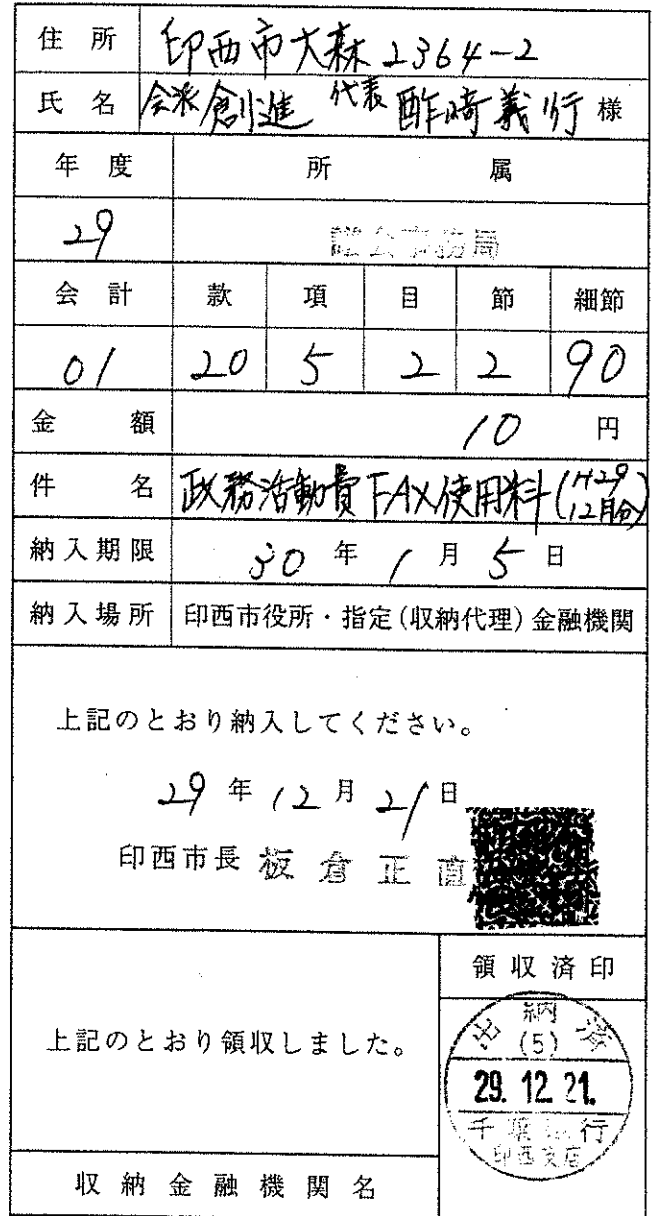 住所 印西市大森2364-2
氏名 会派創進 代表 酢崎義行 様
年度 所属
29 議会事務局
会計 款 項 目 節 細節
01 20 5 2 2 90
金額 10 円
件名 政務活動費FAX使用料(H29 12月分)
納入期限 30 年 1 月 5 日
納入場所 印西市役所・指定(収納代理)金融機関
上記のとおり納入してください。
29 年 12 月 21 日
印西市長 板倉正直
領収済印
上記のとおり領収しました。
出納済
(5)
29.12.21.
千葉銀行
印西支店
収納金融機関名